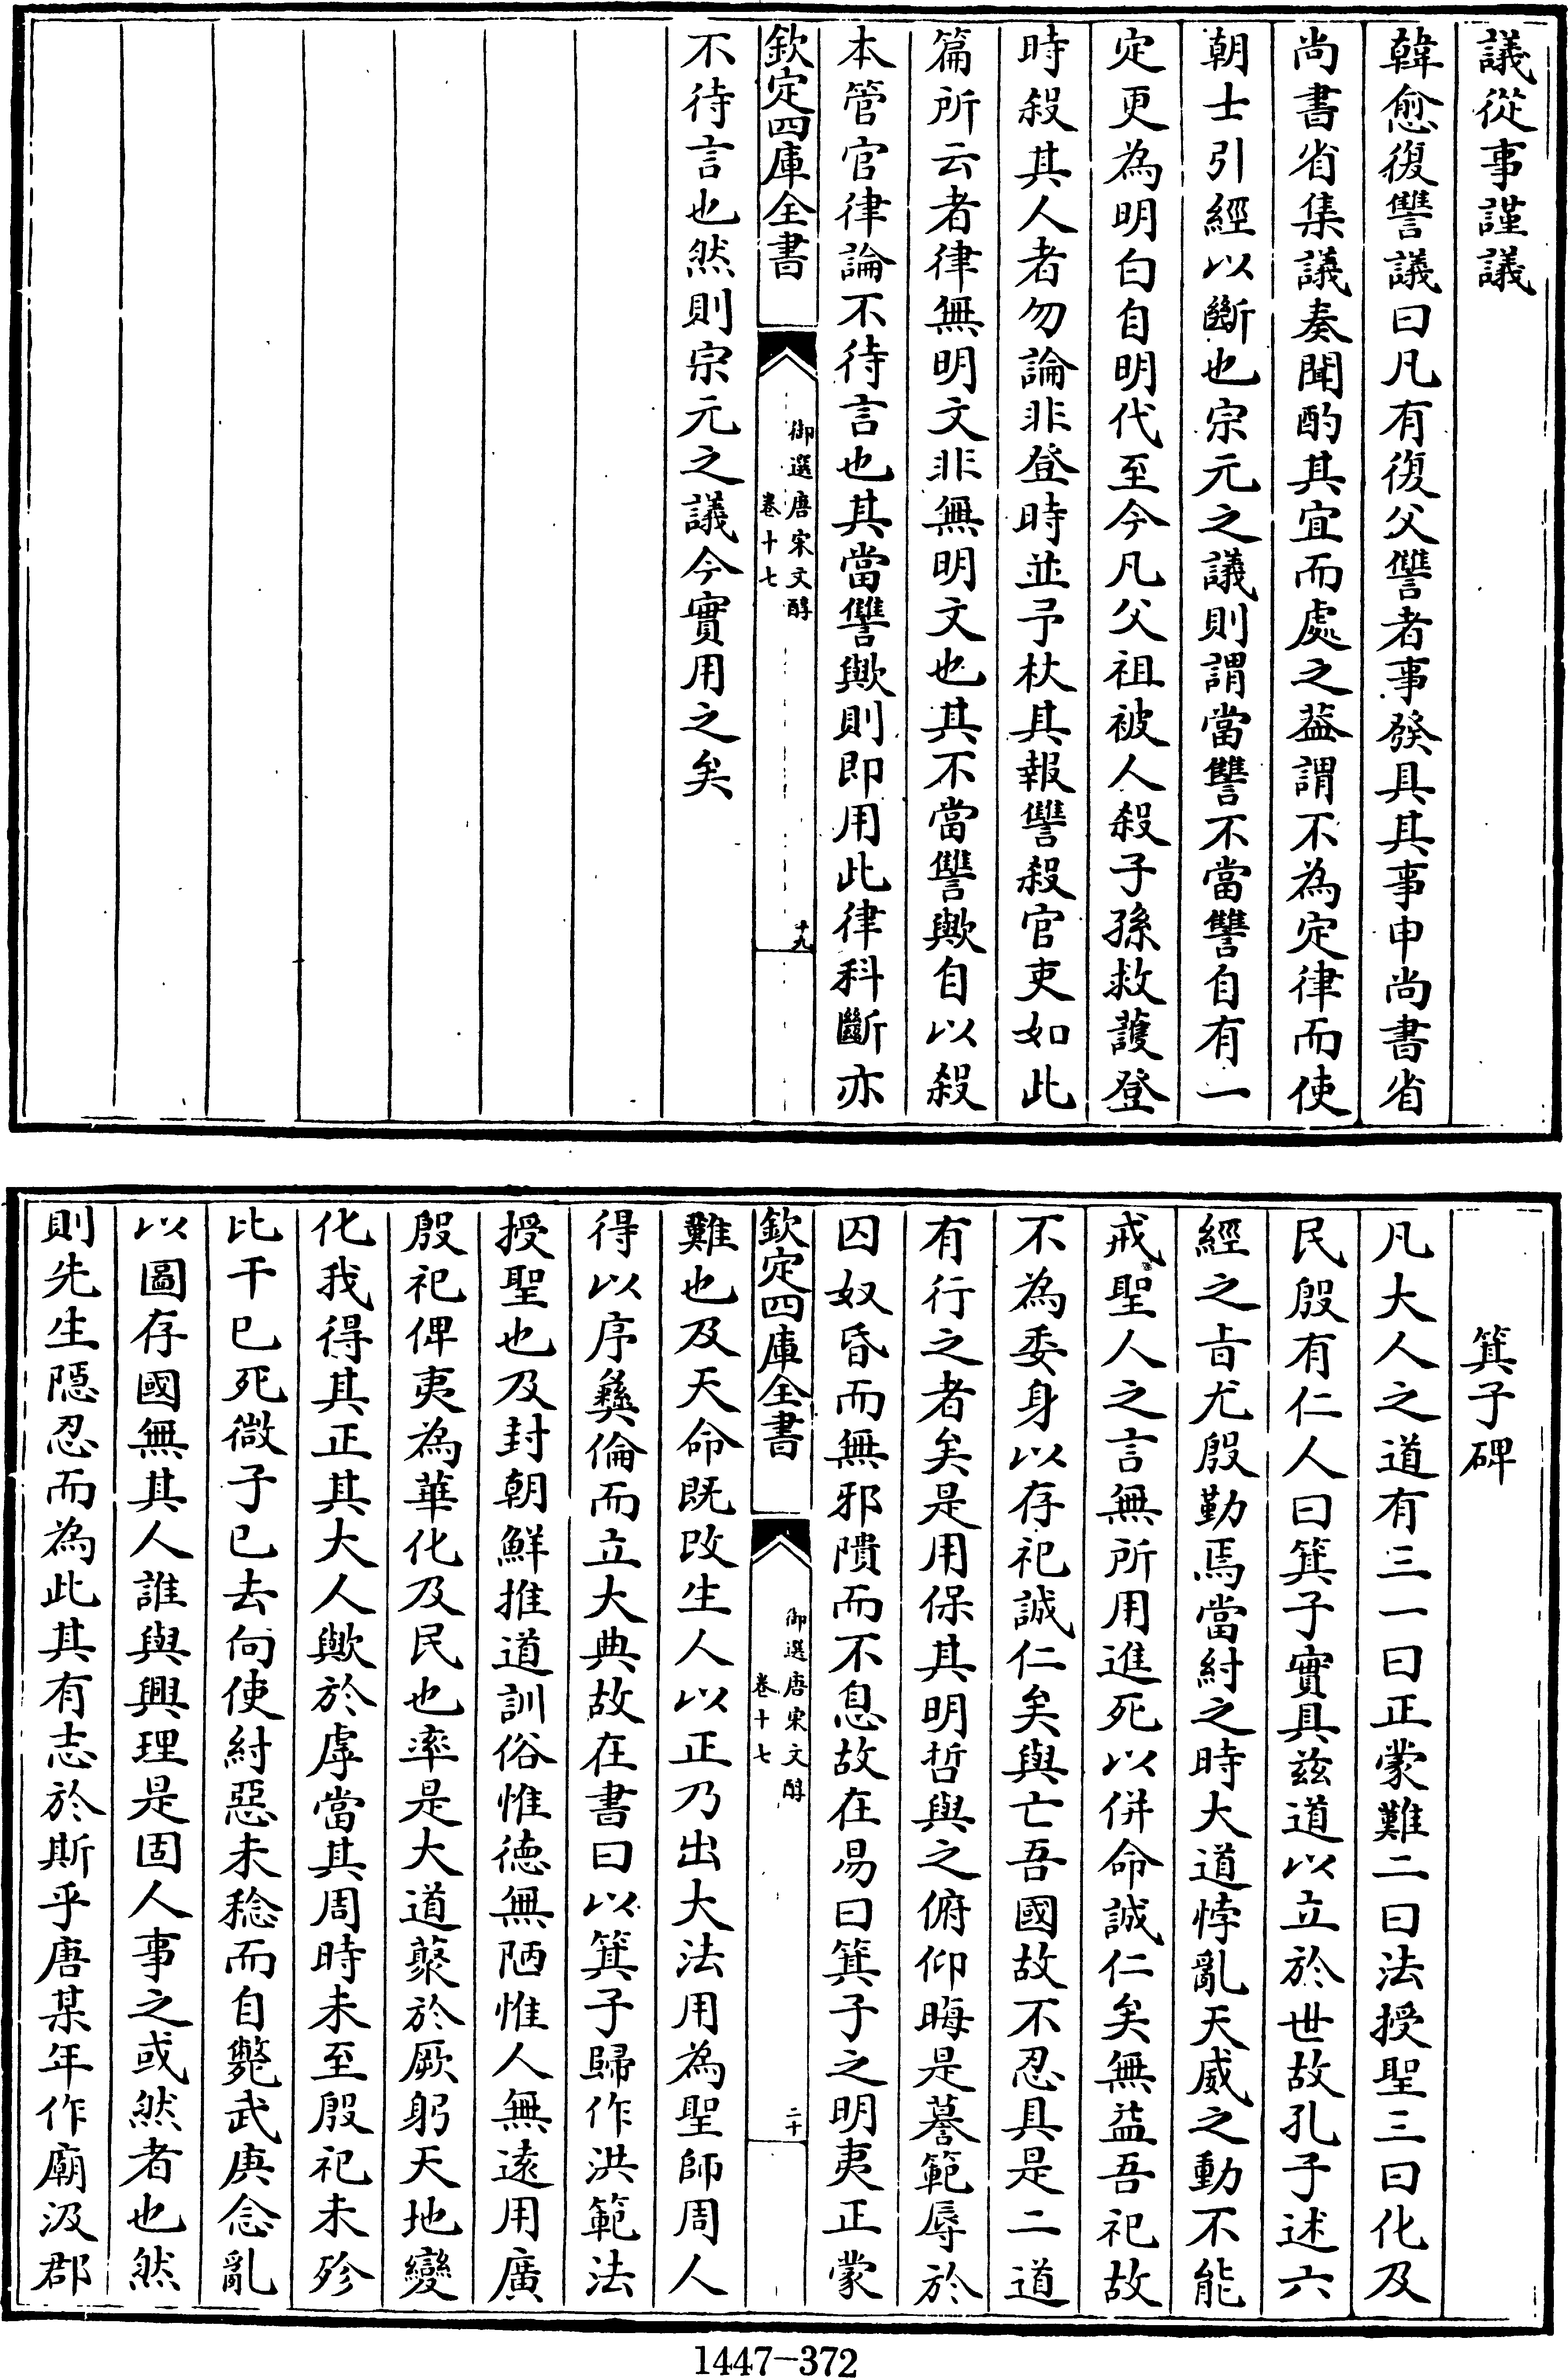 議從事謹議
韓愈復讐議曰凡有復父讐者事發具其事申尚書省
尚書省集議奏聞酌其宜而處之葢謂不為定律而使
朝士引經以斷也宗元之議則謂當讐不當讐自有一
定更為明白自明代至今凡父祖被人殺子孫救護登
時殺其人者勿論非登時並予杖其報讐殺官吏如此
篇所云者律無明文非無明文也其不當讐歟自以殺
本管官律論不待言也其當讐歟則即用此律科斷亦
欽定四庫全書
御選唐宋文醇
卷十七
十九
不待言也然則宗元之議今實用之矣
箕子碑
凡大人之道有三一曰正蒙難二曰法授聖三曰化及
民殷有仁人曰箕子實具兹道以立於世故孔子述六
經之㫖尤殷勤焉當紂之時大道悖亂天威之動不能
戒聖人之言無所用進死以併命誠仁矣無益吾祀故
不為委身以存祀誠仁矣與亡吾國故不忍具是二道
有行之者矣是用保其明哲與之俯仰晦是謩範辱於
囚奴昏而無邪隤而不息故在易曰箕子之明夷正蒙
欽定四庫全書
御選唐宋文醇
卷十七
二十
難也及天命既改生人以正乃出大法用為聖師周人
得以序彝倫而立大典故在書曰以箕子歸作洪範法
授聖也及封朝鮮推道訓俗惟徳無陋惟人無逺用廣
殷祀俾夷為華化及民也率是大道藂於厥躬天地變
化我得其正其大人歟於虖當其周時未至殷祀未殄
比干已死微子已去向使紂惡未稔而自斃武庚念亂
以圖存國無其人誰與興理是固人事之或然者也然
則先生隠忍而為此其有志於斯乎唐某年作廟汲郡
1447-372